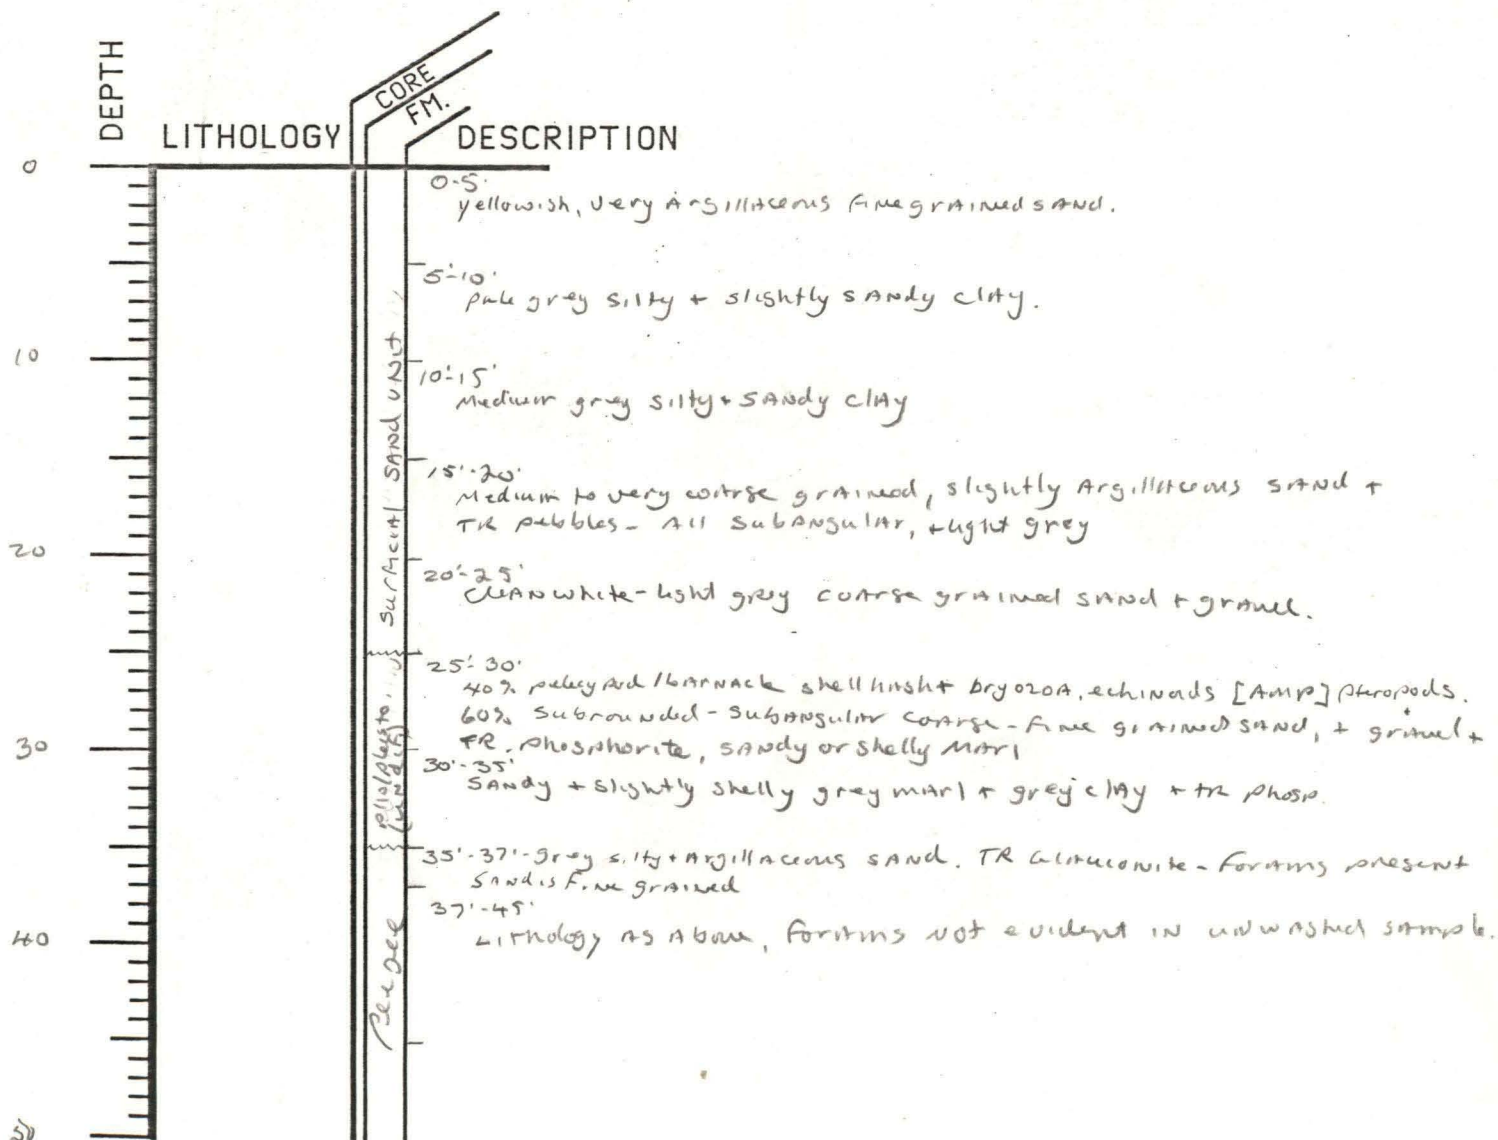 DEPTH
LITHOLOGY
CORE
FM.
DESCRIPTION
0
0-5'
yellowish, very Argillaceous fine grained sand.
5'-10'
pale grey silty + slightly sandy clay.
10
10'-15'
Medium grey silty + sandy clay
surficial sand unit
15'-20'
Medium to very coarse grained, slightly Argillaceous sand +
TR pebbles - All subangular, + light grey
20
20'-25'
clean white - light grey coarse grained sand + gravel.
25'-30'
40% pelecypod / barnack shell hash + bryozoa, echinoids [AMP] pteropods.
60% subrounded - subangular coarse - fine grained sand, + gravel +
TR. phosphorite, sandy or shelly marl
30
plio/pleisto
30'-35'
Sandy + slightly shelly grey marl + grey clay + tr phosp.
35'-37' - grey silty + Argillaceous sand. TR Glauconite - forams present
Sand is fine grained
37'-45'
Lithology as above, forams not evident in unwashed sample.
40
Pee Dee